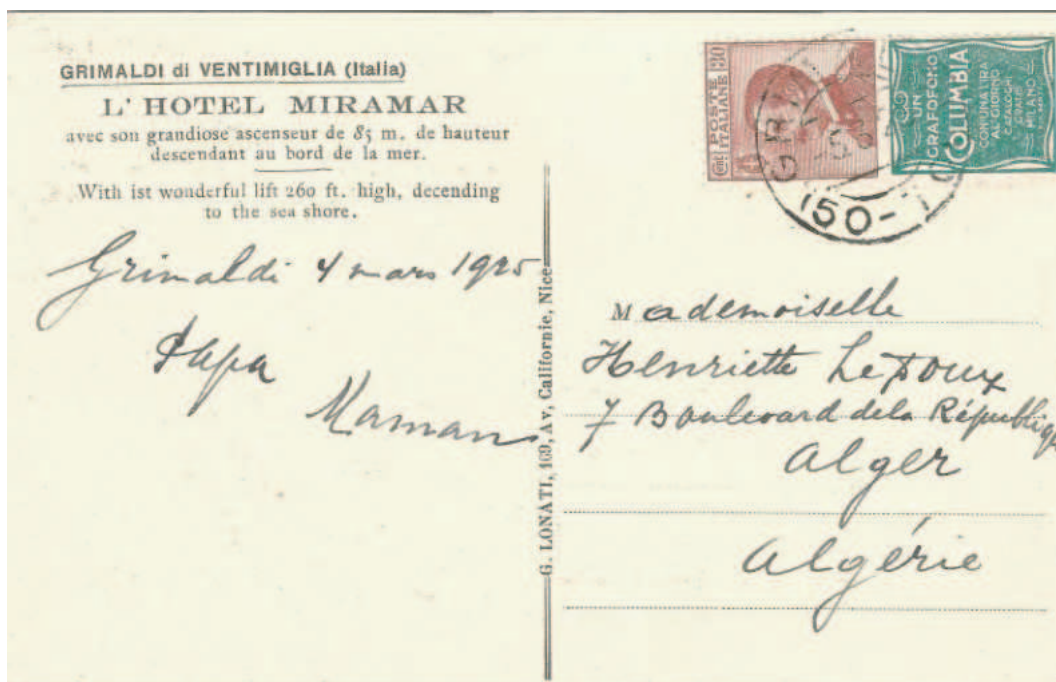 GRIMALDI di VENTIMIGLIA (Italia)
L' HOTEL MIRAMAR
avec son grandiose ascenseur de 85 m. de hauteur
descendant au bord de la mer.
With ist wonderful lift 260 ft. high, decending
to the sea shore.
Grimaldi 4 mars 1925
Papa
Maman
G. LONATI, 169, Av, Californie, Nice
POSTE
ITALIANE
Cmi 30
UN
GRAFOFONO
COLUMBIA
CON UNA LIRA
AL GIORNO
CATALOGHI
GRATIS
MILANO
GRI
(50-
Mademoiselle
Henriette LeDoux
7 Boulevard de la République
Alger
Algérie